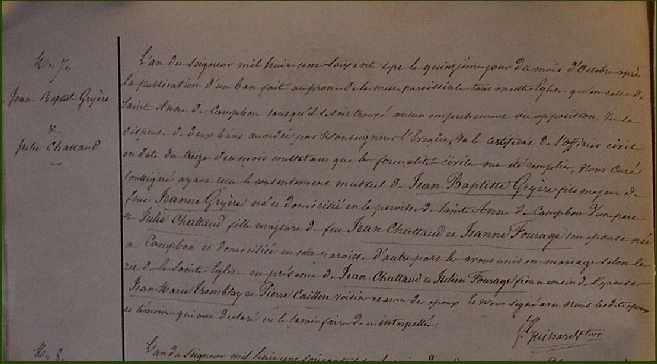 M. 7.
Jean Baptiste Gryère
&
Julie Chattaud
L'an du seigneur mil huit cent soixante sept le quinzième jour du mois d'Octobre après
la publication d'un ban fait au prône de la messe paroissiale tant en cette Eglise qu'en celle de
Sainte Anne de Campbon sans qu'il se soit trouvé aucun empêchement ou opposition. Vu la
dispense de deux bans accordée par Monseigneur l'Evêque, Vu le certificat de l'officier civil
en date du treize du mois constatant que la formalité civile a été remplie, Nous curé
soussigné ayant reçu le consentement mutuel de Jean Baptiste Gryère fils majeur de
feue Jeanne Gryère né et domicilié en la paroisse de Sainte Anne de Campbon d'une part
et de Julie Chattaud fille majeure de feu Jean Chattaud et Jeanne Fourage son épouse née
à Campbon et domiciliée en cette paroisse d'autre part les avons unis en mariage selon le
rit de la Sainte Eglise en présence de Jean Chattaud et Julien Fourage frère et cousin de l'épouse
Jean Marie Tremblay et Pierre Caillon voisin
et témoins qui ont déclaré ne le savoir faire de ce interpellés
M. 8.
L'an du seigneur mil huit cent soixante